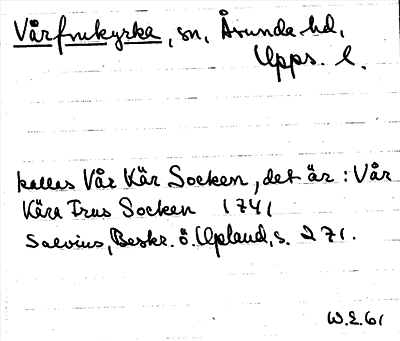 Vårfrukyrka, sn, Åsunda hd,
Upps. l.
kallas Vår Kär Socken, det är: Vår
Kära Frus Socken 1741
Salvius, Beskr. ö. Upland, s. 271.
W.E.61